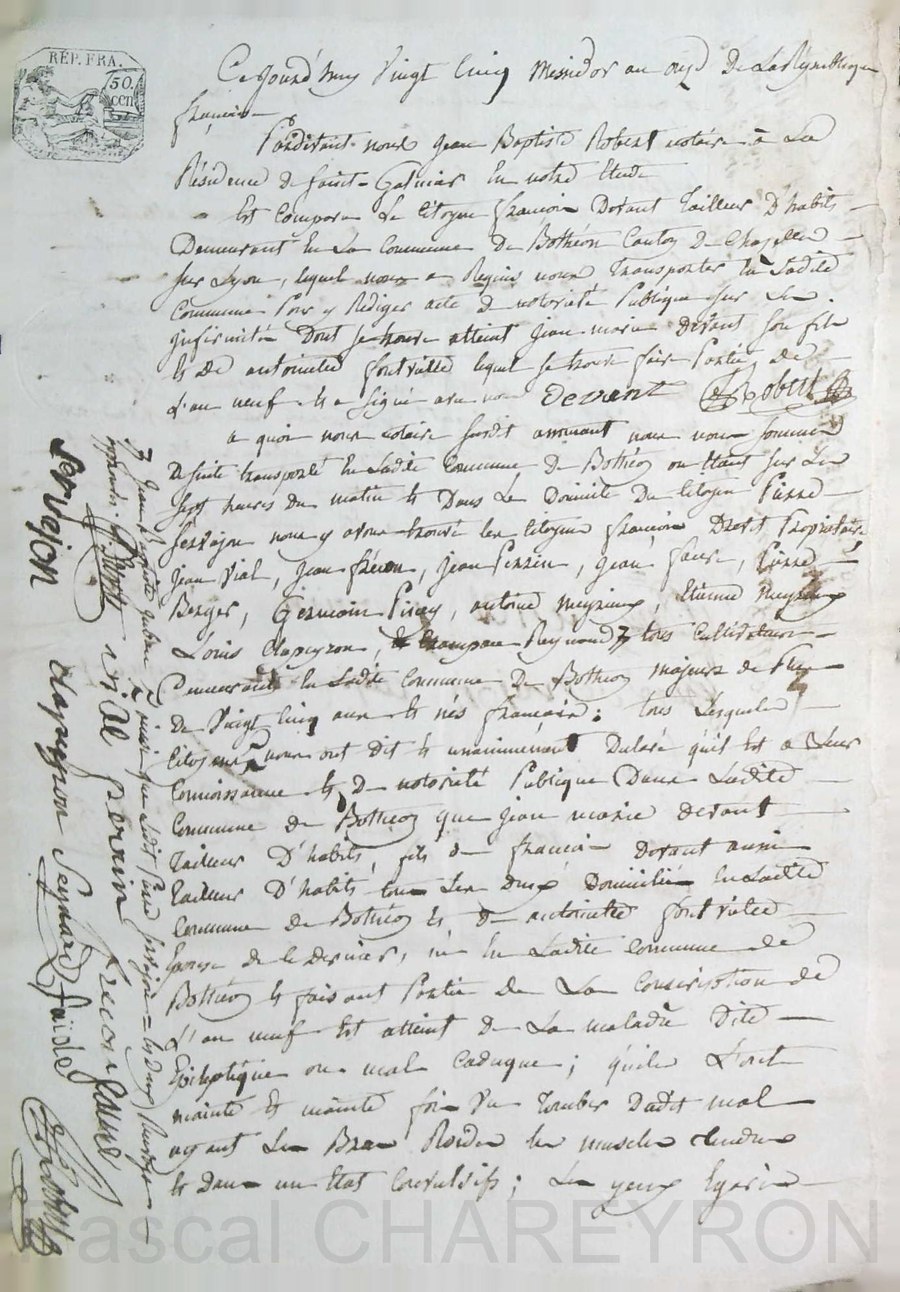 RÉP. FRA.
50.
CEN
Ce jourd'huy Vingt Cinq Messidor an onze De La Republique
françoise
Pardevant nous Jean Baptiste Robert notaire à La
Résidence de Saint-Galmier En notre Etude
Est Comparu Le Citoyen françois Devant Tailleur D'habits
Demeurant En La Commune De Bothéon Canton De Chazelles
sur Lyon, lequel nous a Requis nous Transporter En Ladite
Commune Pour y Rédiger acte de notoriété Publique sur Les
infirmités Dont se trouve atteint Jean marie devant son fils
& De antoinette fontvielle lequel se trouve faire Partie de
L'an neuf & a signé avec nous Devant Robert
a quoi nous notaire susdit nous nous sommes
De suite transporté En Ladite Commune De Bothéon ou Etant sur Les
Sept heures du matin & Dans Le Domicile Du Citoyen Pierre
Servajon nous y avons trouvé les Citoyens françois Propriétaire
Jean Vial, Jean fréron, Jean Perrin, Jean faure, Pierre
Berger, Germain Piney, antoine meyrieux, Etienne meyrieux
Louis Clapeyron, Reymond tous Cultivateurs
Demeurants En Ladite Commune De Bothéon majeurs de Plus
De Vingt Cinq ans & nés françois; tous Lesquels
Citoyens nous ont dit & unanimement Déclaré qu'il Est a Leur
Connoissance & De notoriété Publique Dans Ladite
Commune De Bothéon que Jean marie devant
Tailleur D'habits, fils de françois Devant aussi
Tailleur D'habits tous Les deux Domiciliés En Ladite
Commune de Bothéon & De antoinette fontvielle
Epouse de Ce Dernier, né En Ladite Commune de
Bothéon & faisant Partie De La Conscription de
L'an neuf Est atteint De La maladie Dite
Epileptique ou mal Caduque; qu'ils L'ont
mainte & mainte fois Vu Tomber Dudit mal
ayant Les Bras Roides les muscles tendus
& Dans un Etat Convulsifs; Les yeux Egarés
Jean Baptiste ainsi que Ledit Pierre Servajon
Servajon
vial perrin frecon faure
clapeyron Reymond
Robert
Pascal CHAREYRON